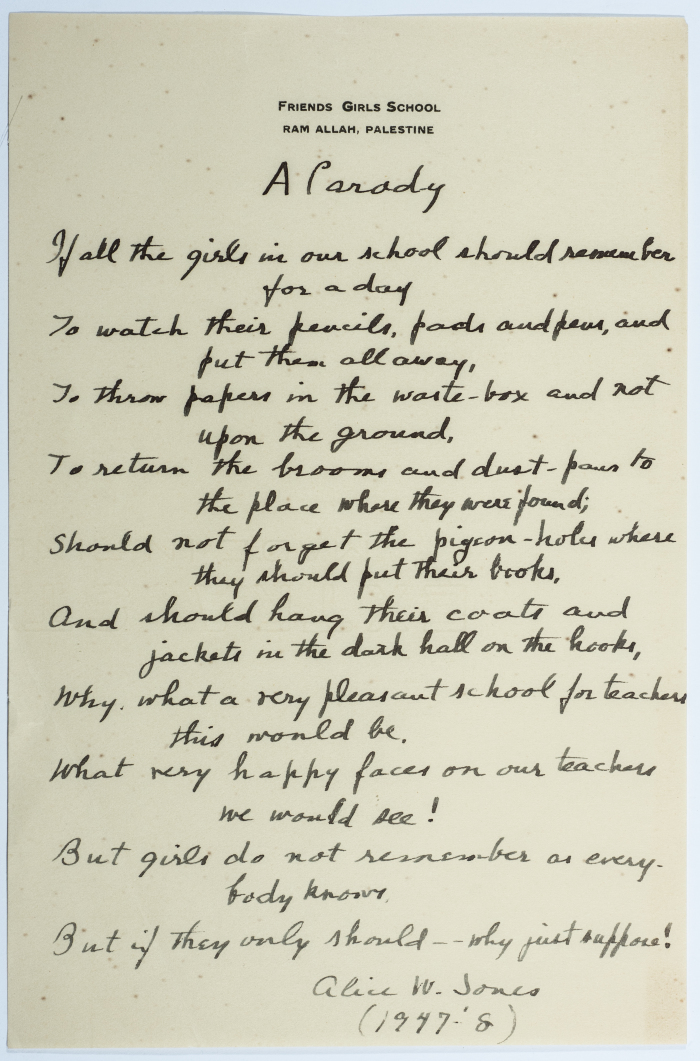 FRIENDS GIRLS SCHOOL
RAM ALLAH, PALESTINE
A Parody
If all the girls in our school should remember
for a day
To watch their pencils, pads and pens, and
put them all away,
To throw papers in the waste-box and not
upon the ground,
To return the brooms and dust-pans to
the place where they were found;
Should not forget the pigeon-holes where
they should put their books,
And should hang their coats and
jackets in the dark hall on the hooks,
Why. what a very pleasant school for teachers
this would be.
What very happy faces on our teachers
we would see!
But girls do not remember as every-
body knows.
But if they only should -- why just suppose!
Alice W. Jones
(1947-'8)